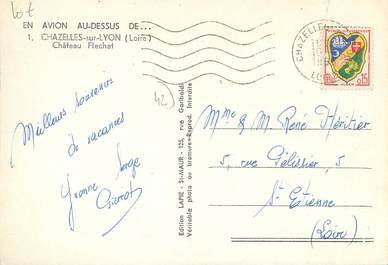 Lot
EN AVION AU-DESSUS DE...
1. CHAZELLES-sur-LYON (Loire)
Château Flechet
Meilleurs souvenirs
de vacances
Yvonne Serge
Pierrot
(42)
Edition LAPIE - St-MAUR - 125, rue Garibaldi
Véritable photo au bromure-Reprod. Interdite
CHAZELLES
0,15
Mme & M. René Héritier
5, rue Pélissier, 5
St-Etienne
(Loire)